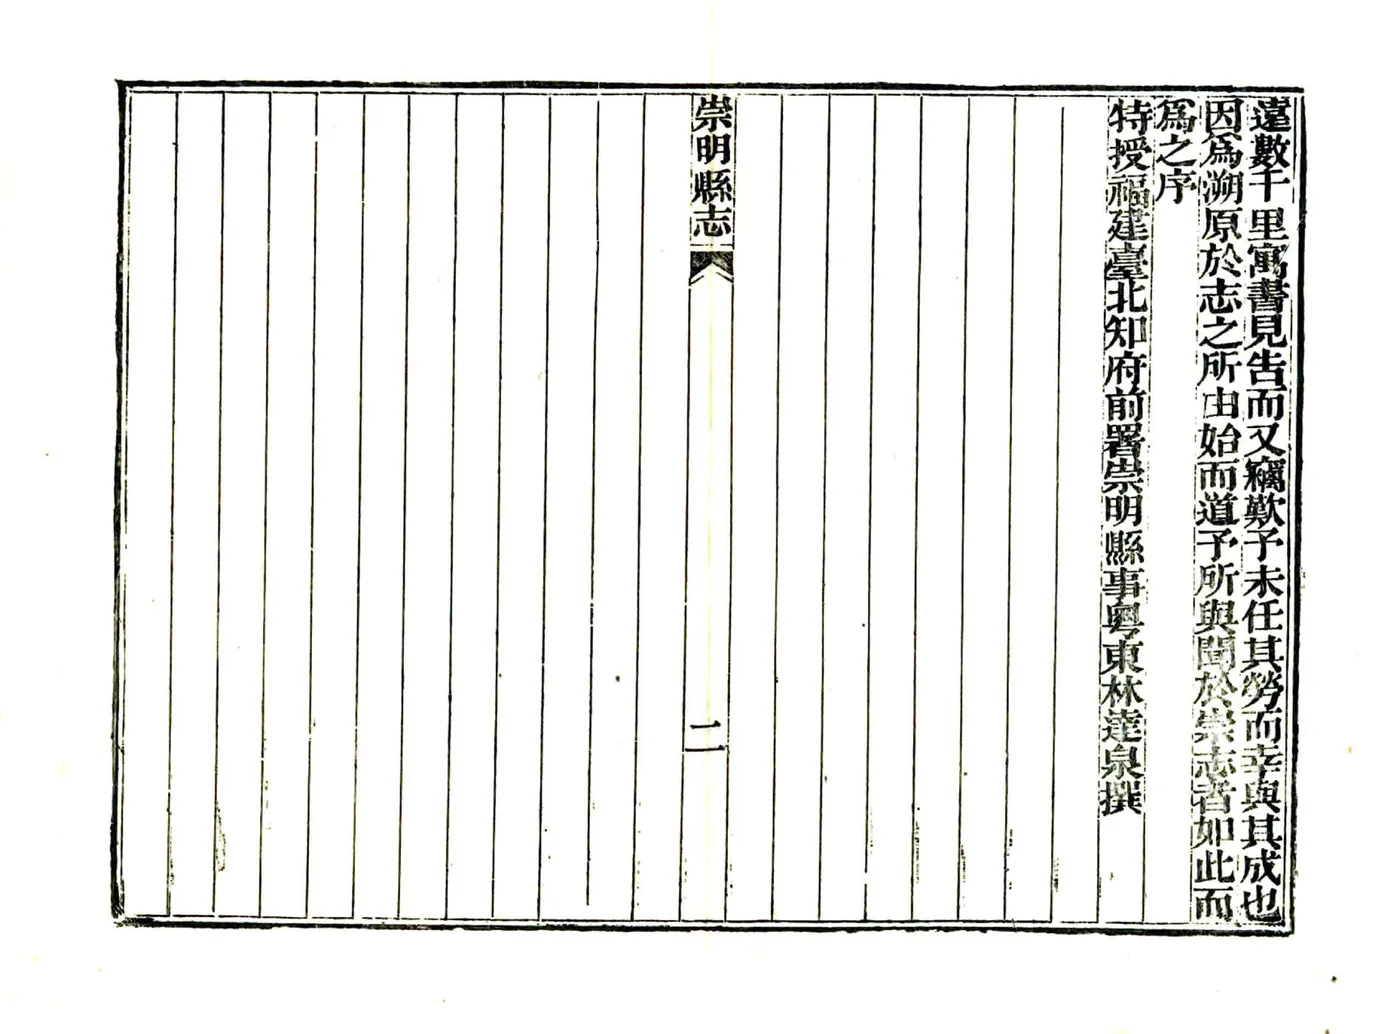 遠數千里寓書見告而又竊歎予未任其勞而幸與其成也
因爲溯原於志之所由始而道予所與聞於崇志者如此而
爲之序
特授福建臺北知府前署崇明縣事粵東林達泉撰
崇明縣志
二